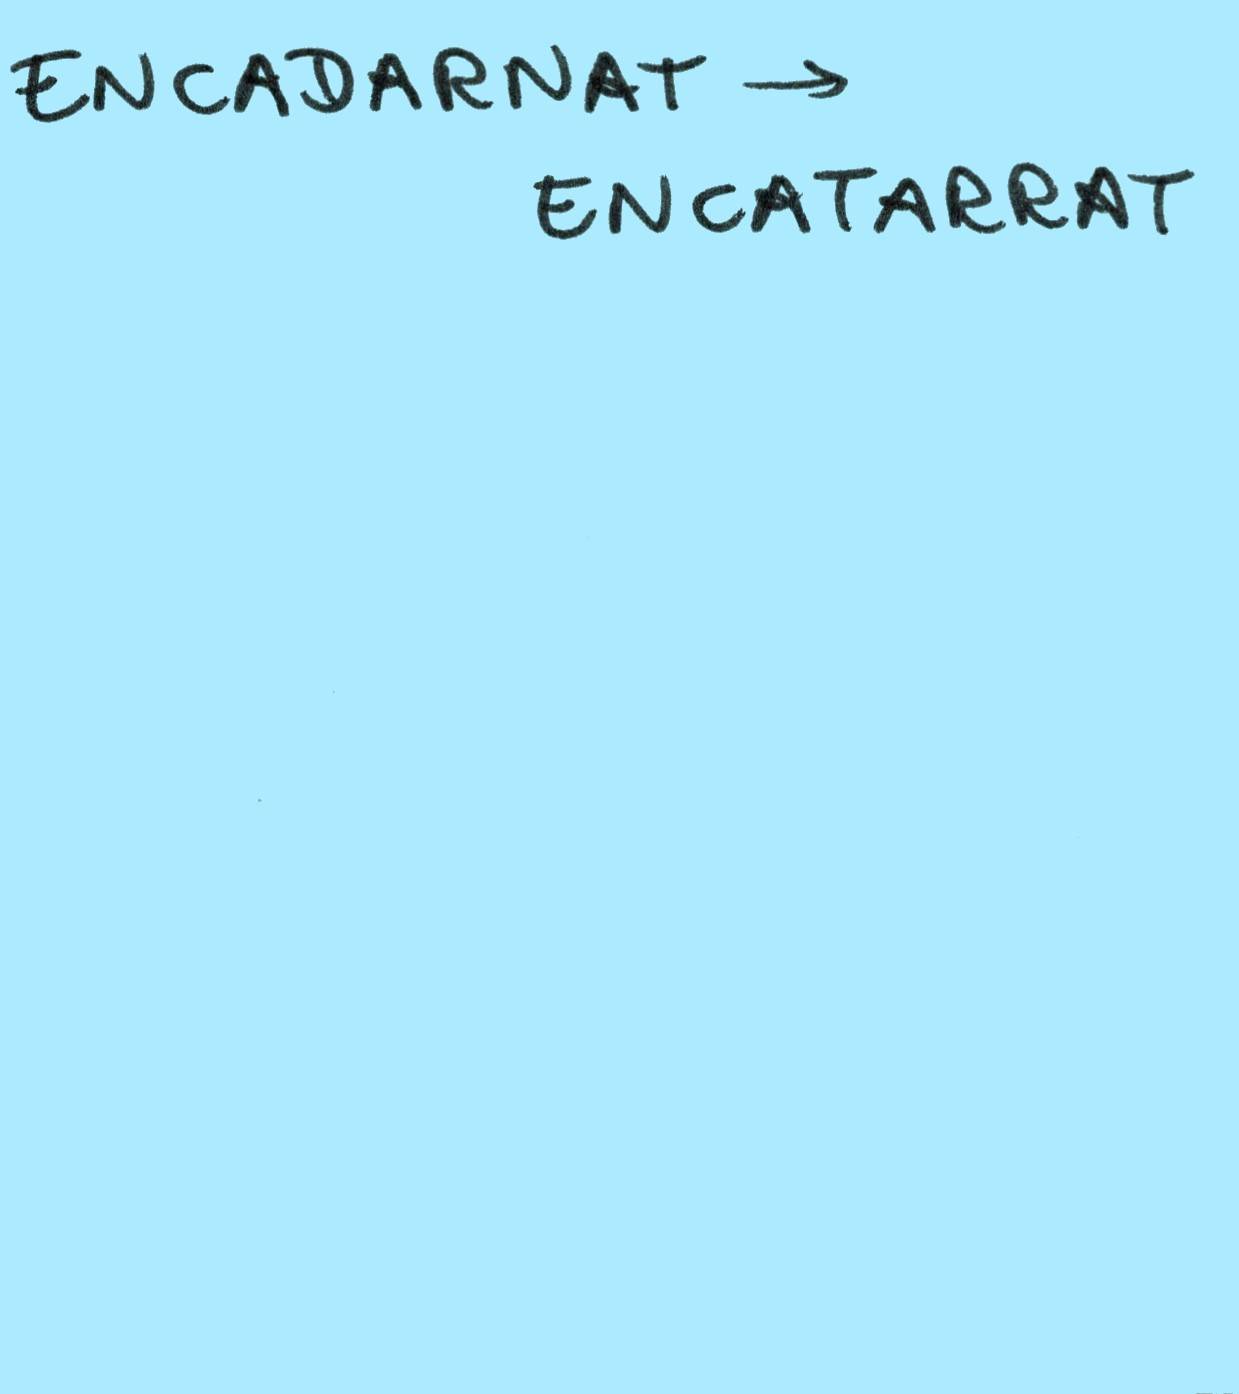 ENCADARNAT →
ENCATARRAT